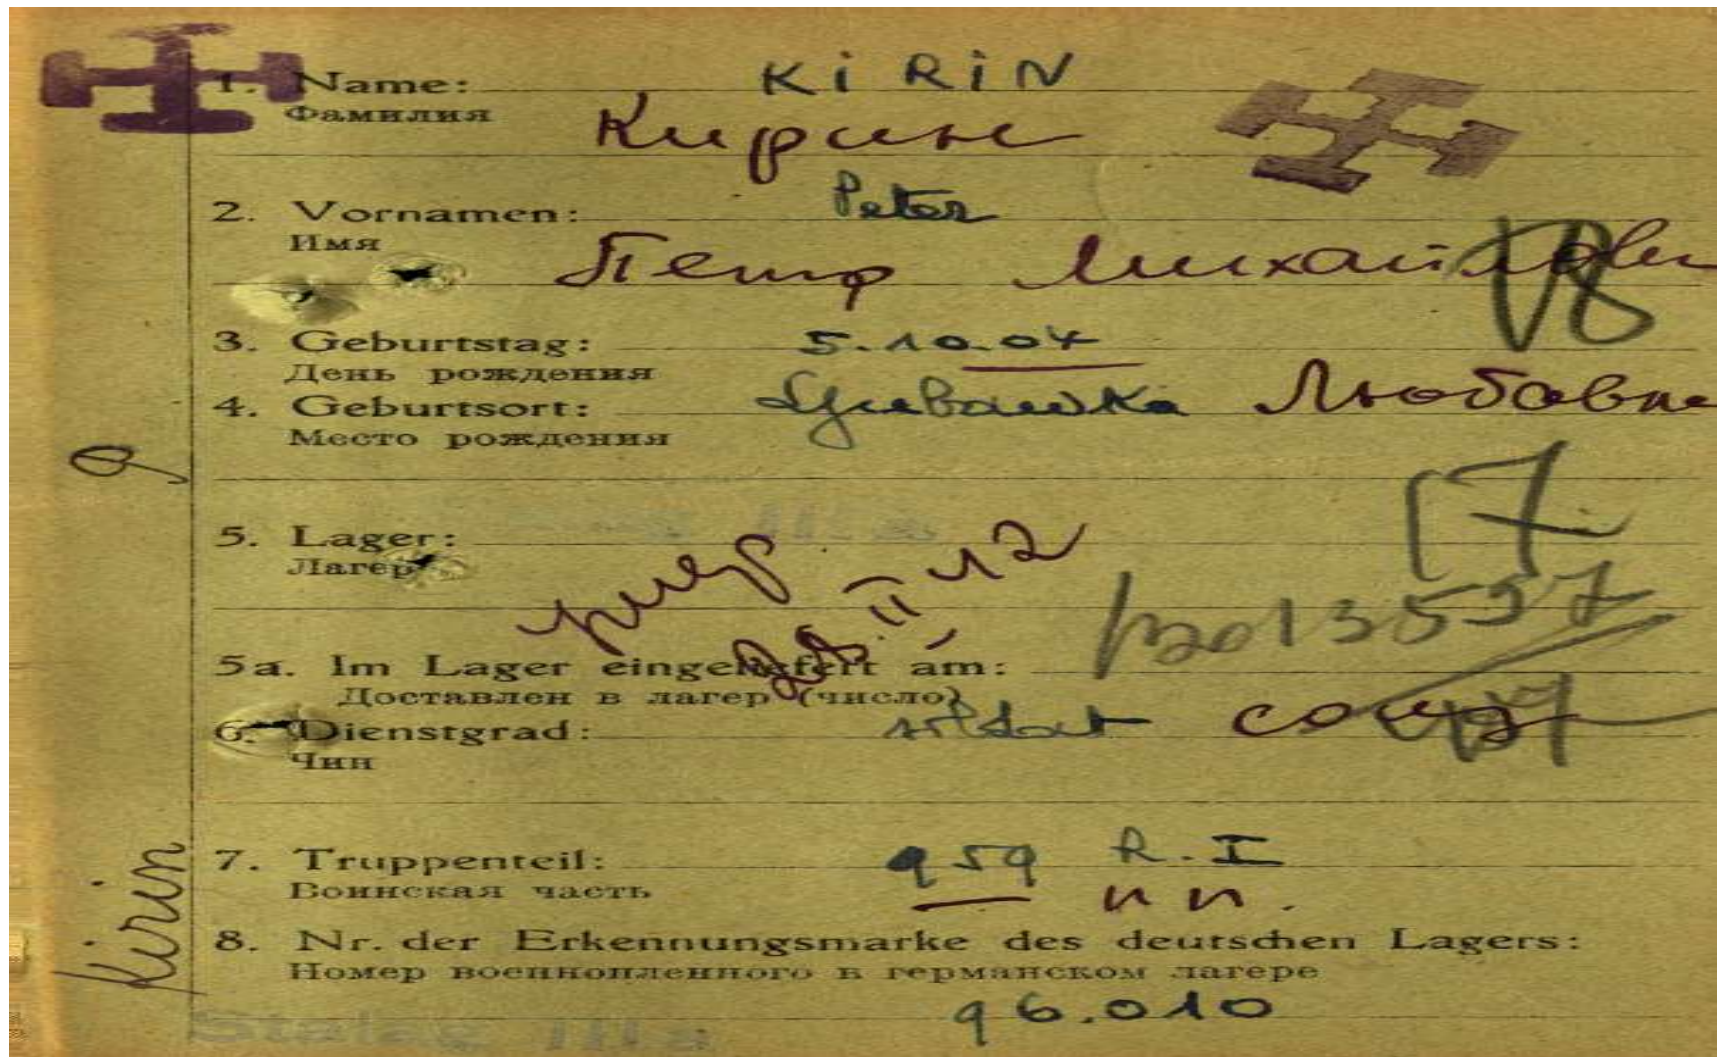 1. Name: KiRiN
Фамилия Кирин
2. Vornamen: Peter
Имя Петр Михайлови
3. Geburtstag: 5.10.04
День рождения
4. Geburtsort: Ljubawka Любавка
Место рождения
5. Lager:
Лагерь
умер
28.II 42
5a. Im Lager eingeliefert am:
Доставлен в лагер (число)
6. Dienstgrad: soldat солд
Чин
7. Truppenteil: 959 R.I
Воинская часть п п.
8. Nr. der Erkennungsmarke des deutschen Lagers:
Номер военнопленного в германском лагере
96.010
Stalag III a
Kirin